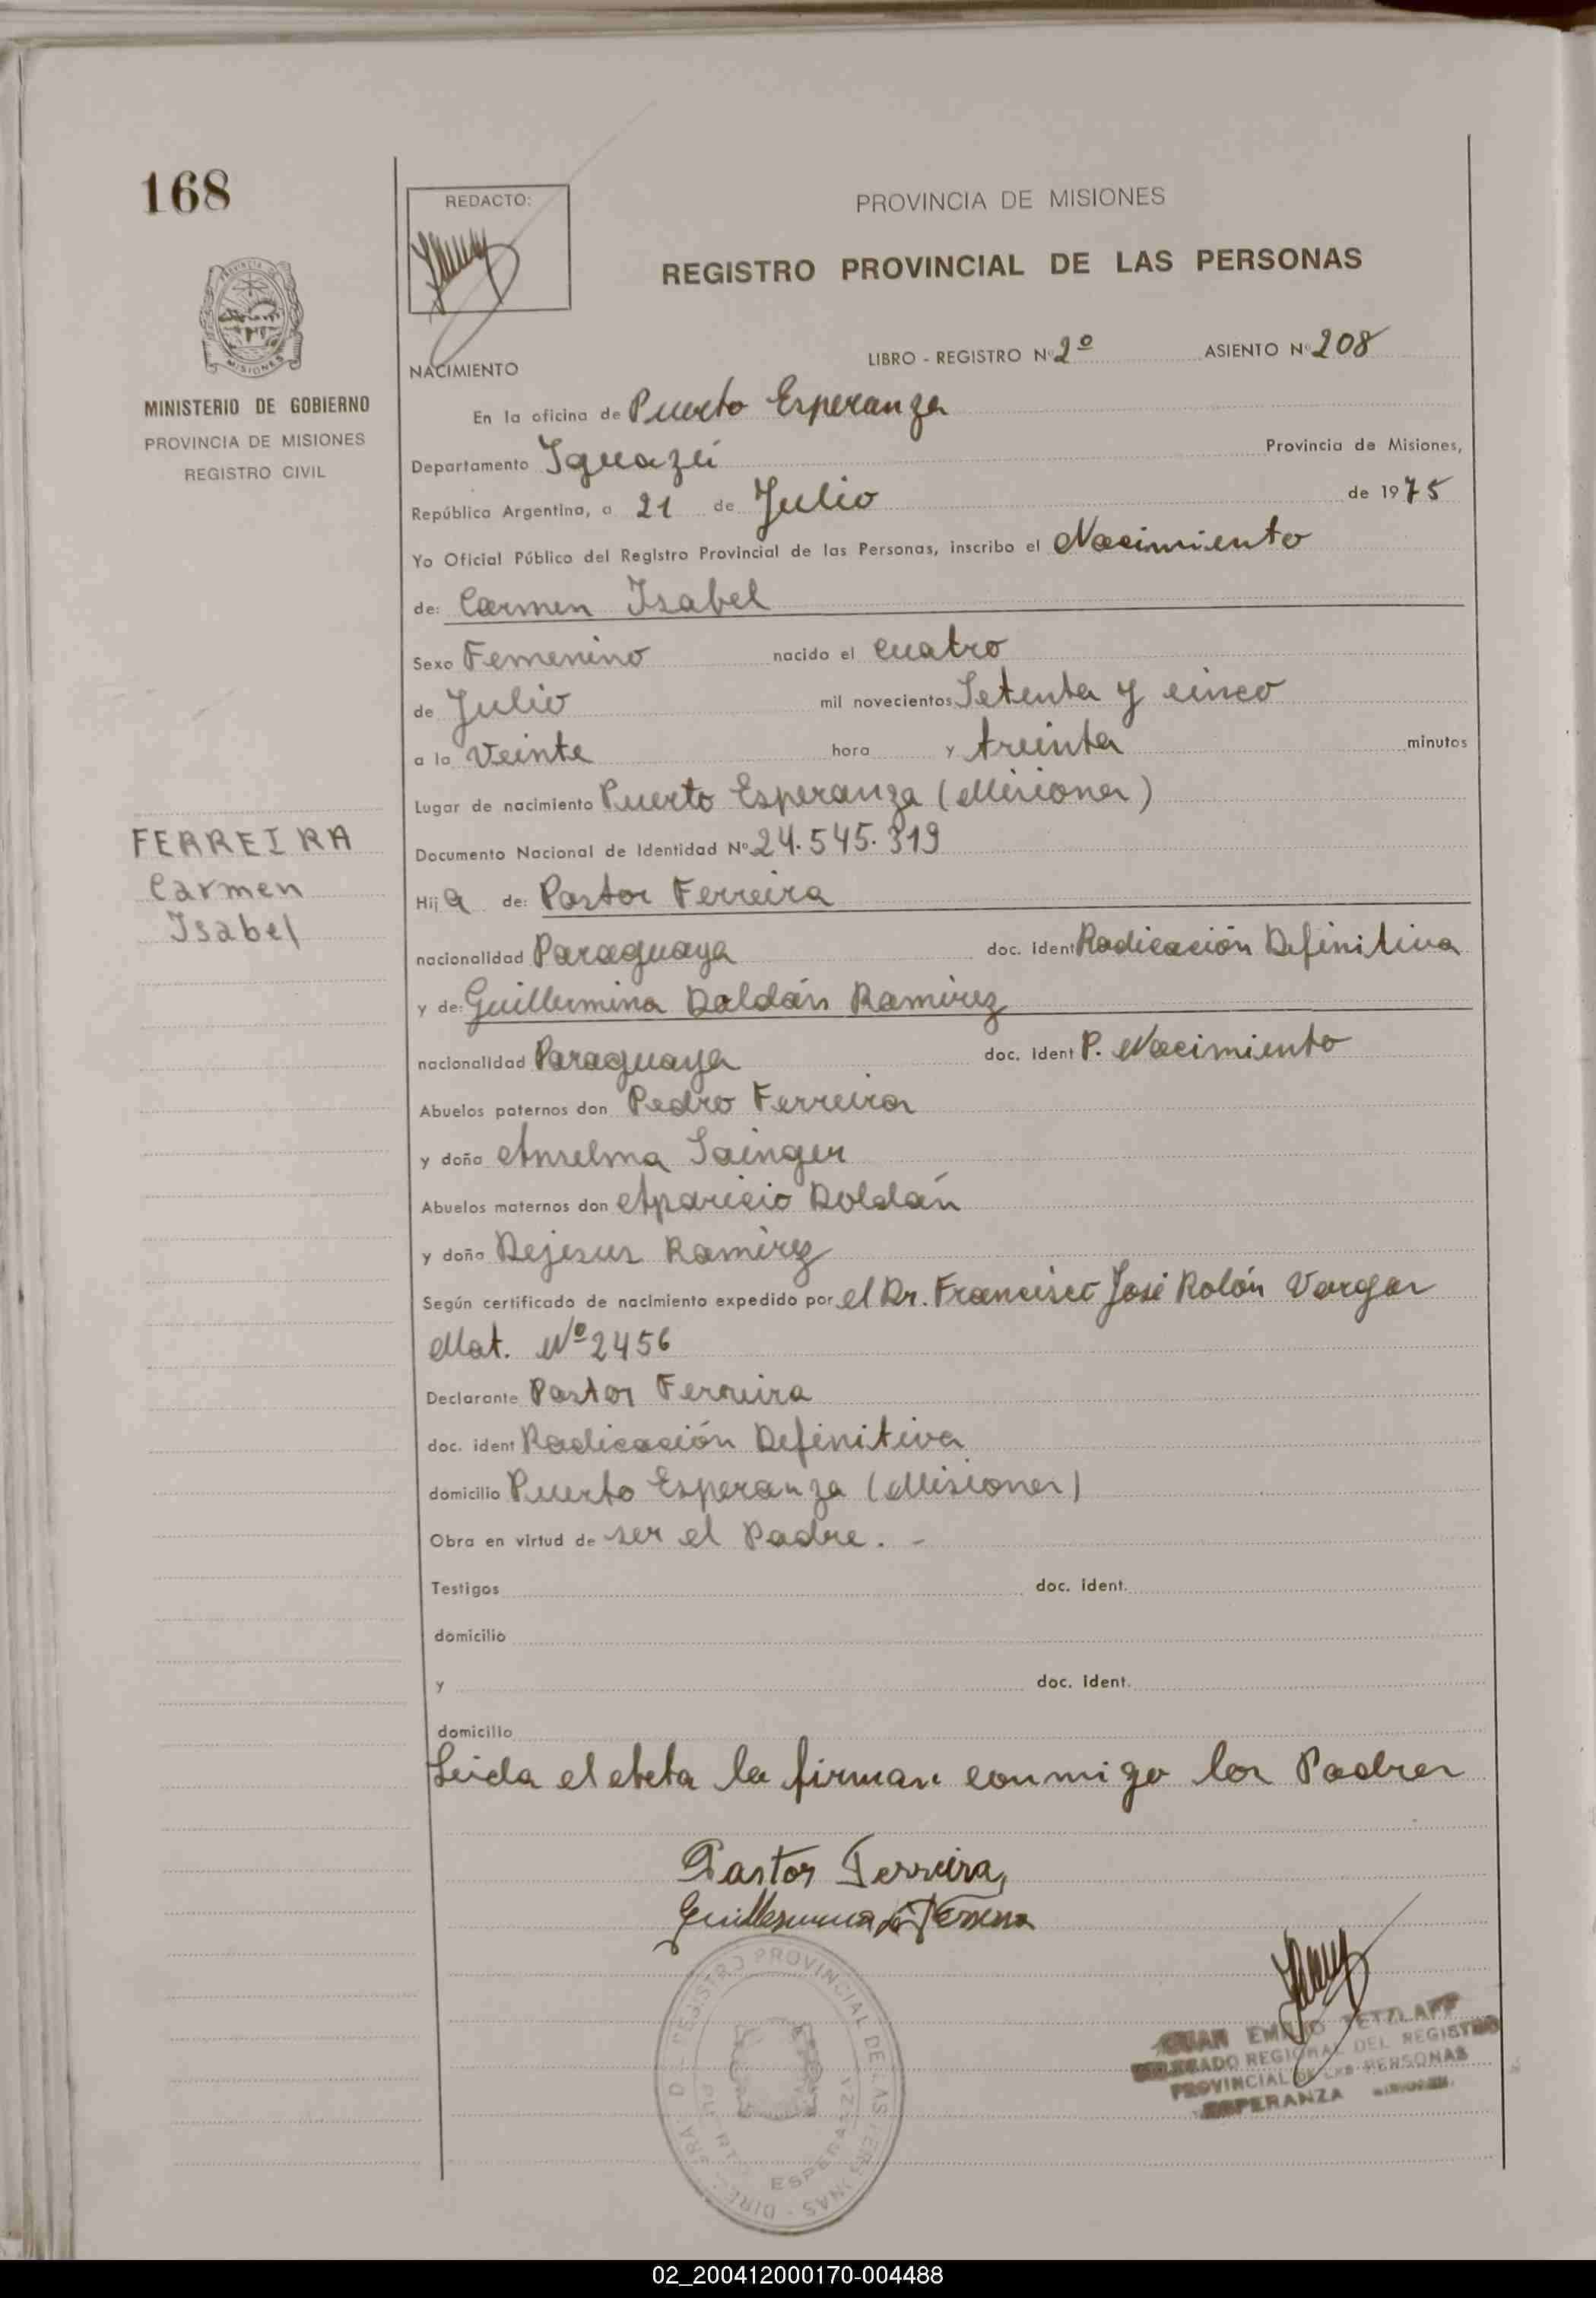 168
REDACTO:
PROVINCIA DE MISIONES
REGISTRO PROVINCIAL DE LAS PERSONAS
MISIONES
MINISTERIO DE GOBIERNO
PROVINCIA DE MISIONES
REGISTRO CIVIL
NACIMIENTO
LIBRO - REGISTRO Nº 2º ASIENTO Nº 208
En la oficina de Puerto Esperanza
Departamento Iguazú Provincia de Misiones,
República Argentina, a 21 de Julio de 1975
Yo Oficial Público del Registro Provincial de las Personas, inscribo el Nacimiento
de: Carmen Isabel
Sexo Femenino nacido el cuatro
de Julio mil novecientos Setenta y cinco
a la Veinte hora y treinta minutos
Lugar de nacimiento Puerto Esperanza (Misiones)
Documento Nacional de Identidad Nº 24.545.319
FERREIRA
Carmen
Isabel
Hija de: Pastor Ferreira
nacionalidad Paraguaya doc. ident Radicación Definitiva
y de: Guillermina Doldán Ramírez
nacionalidad Paraguaya doc. ident P. Nacimiento
Abuelos paternos don Pedro Ferreira
y doña Anselma Sainger
Abuelos maternos don Aparicio Doldán
y doña Dejesus Ramírez
Según certificado de nacimiento expedido por el Dr. Francisco José Rolón Vargas
Mat. Nº 2456
Declarante Pastor Ferreira
doc. ident Radicación Definitiva
domicilio Puerto Esperanza (Misiones)
Obra en virtud de ser el Padre. -
Testigos doc. ident.
domicilio
y doc. ident.
domicilio
Leida el Acta la firman conmigo los Padres
Pastor Ferreira
Guillermina de Ferreira
REGISTRO PROVINCIAL DE LAS PERSONAS
PUERTO ESPERANZA
JUAN EMILIO TETZLAFF
DELEGADO REGIONAL DEL REGISTRO
PROVINCIAL DE LAS PERSONAS
ESPERANZA MISIONES
02_200412000170-004488